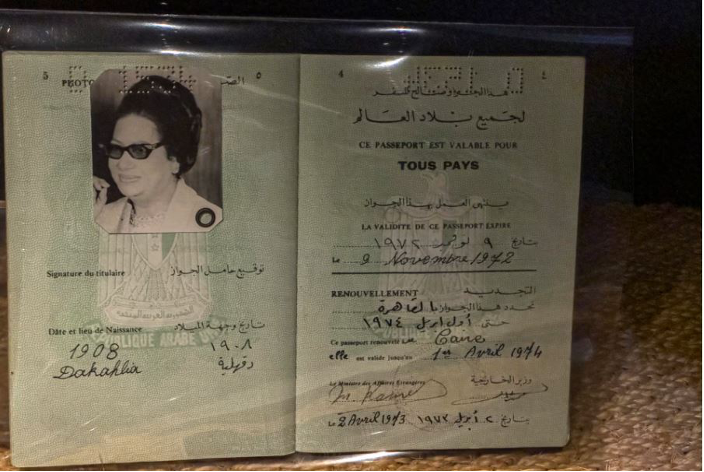 5 PHOTO ٥
Signature du titulaire توقيع حامل الجواز
Date et lieu de Naissance تاريخ وجهة الميلاد
1908 ١٩٠٨
Dakahlia دقهلية
4 ٤
لجميع بلاد العالم
CE PASSEPORT EST VALABLE POUR
TOUS PAYS
ينتهى العمل بهذا الجواز
LA VALIDITE DE CE PASSEPORT EXPIRE
بتاريخ ٩ نوفمبر ١٩٧٢
Le 9 Novembre 1972
RENOUVELLEMENT التجديد
تجدد هذا الجواز بالقاهرة
حتى أول ابريل ١٩٧٤
Ce passeport renouvelé Caire
elle est valide jusqu'au 1er Avril 1974
Le Ministre des Affaires Etrangères وزير الخارجية
Le 2 Avril 1973 بتاريخ ٢ أبريل ١٩٧٣